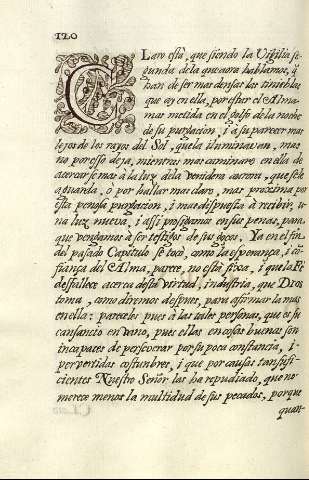 120
CLaro està, que siendo la Vigilia se-
gunda dela que aora hablamos, q̃
han de ser mas densas las tinieblas
que ay en ella, por estar el Alma
mas metida en el golfo de la noche
de su purgacion, i a su parecer mas
lejos de los rayos del Sol, que la iluminavan, mas
no por esso deja, mientras mas caminare en ella de
acercarse mas à la luz dela venidera aurora, que se le
aguarda, ò por hallar mas claro, mas proxima por
esta penosa purgacion, i mas dispuesta à recibir, u-
na luz nueva, i assi prosigamos en sus penas, para
que vengamos à ser testigos de sus goços. Ya en el fin
del pasado Capitulo se tocò, como la esperança, i cõ-
fiança del Alma, parece, no està fixa, i que la Fè
desfallece acerca desta virtud, industria, que Dios
toma, como diremos despues, para afirmarla mas
en ella: pareceles pues à las tales personas, que es su
cansancio en vano, pues ellas en cosas buenas son
incapaces de perseverar por su poca constancia, i-
pervertidas costunbres, i que por causas tan sufi-
cientes Nuestro Señor las ha repudiado, que no
merece menos la multidud de sus pecados, porque
quan-